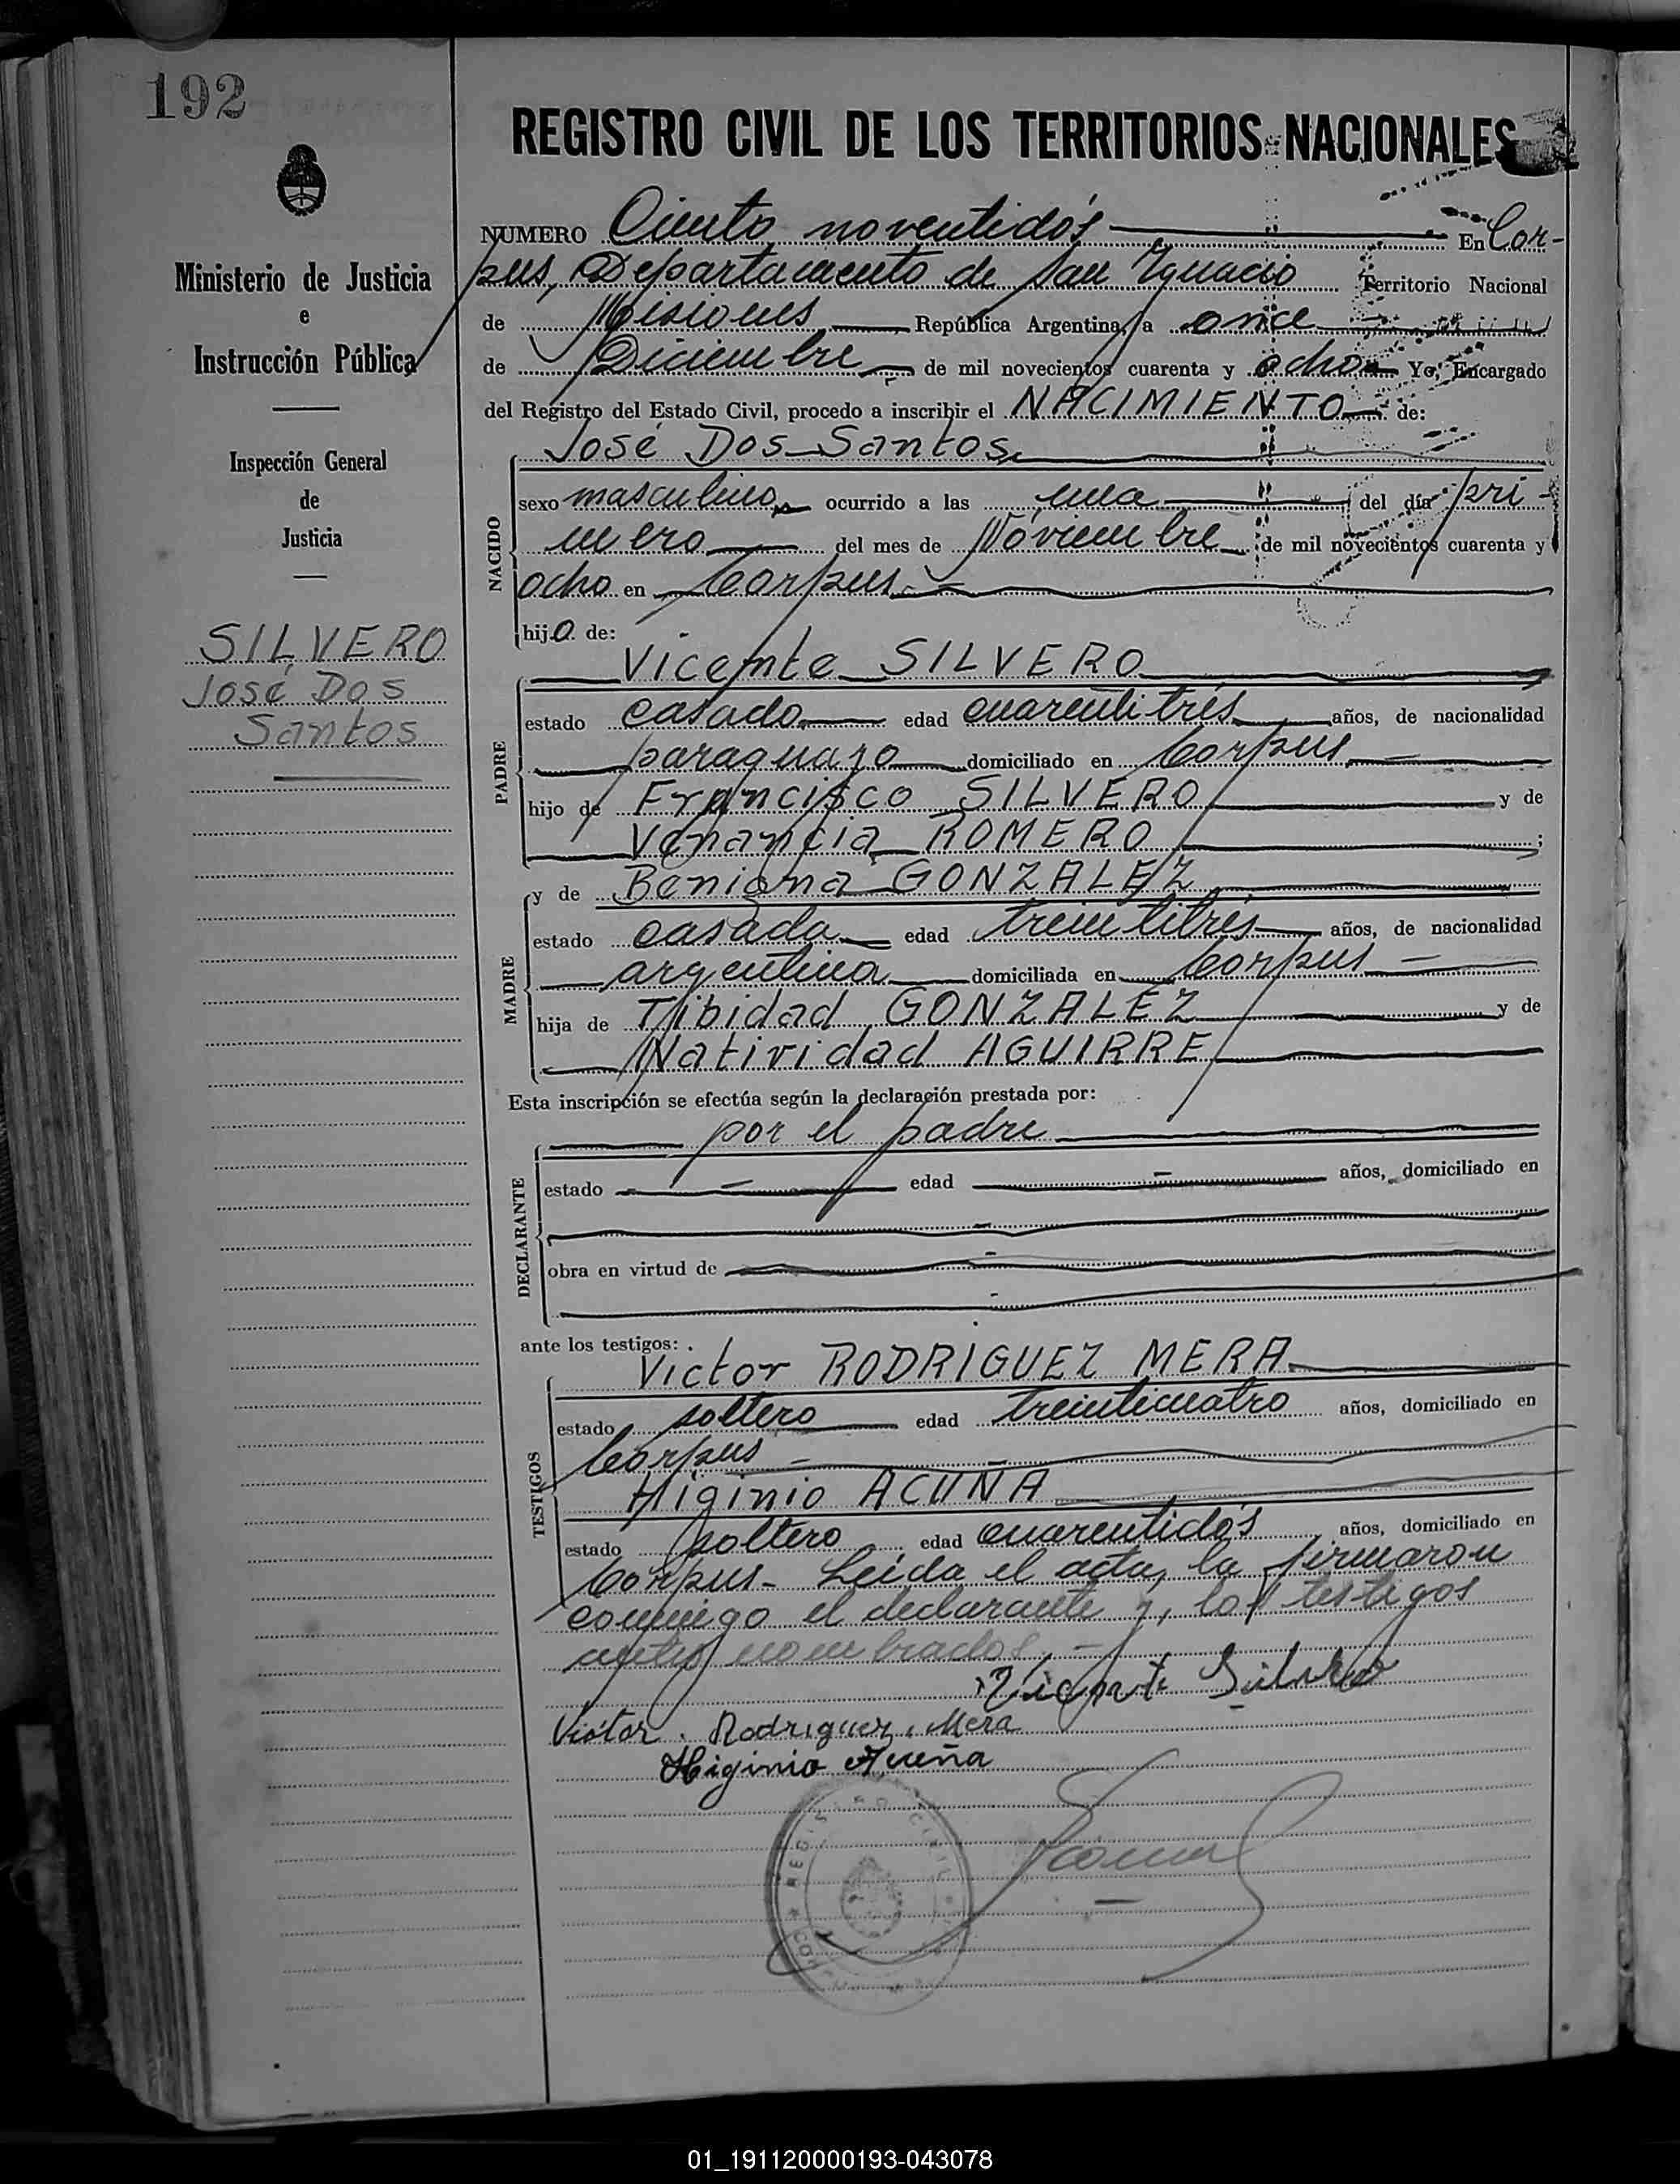 192
REGISTRO CIVIL DE LOS TERRITORIOS NACIONALES
Ministerio de Justicia
e
Instrucción Pública
Inspección General
de
Justicia
SILVERO
José Dos
Santos
NUMERO Ciento noventidós En Cor-
pus, Departamento de San Ygnacio Territorio Nacional
de Misiones República Argentina, a once
de Diciembre de mil novecientos cuarenta y ocho Yo, Encargado
del Registro del Estado Civil, procedo a inscribir el NACIMIENTO de:
José Dos Santos
NACIDO
sexo masculino ocurrido a las una del día pri-
mero del mes de Noviembre de mil novecientos cuarenta y
ocho en Corpus
hijo de:
Vicente SILVERO
PADRE
estado casado edad cuarentitrés años, de nacionalidad
paraguayo domiciliado en Corpus
hijo de Francisco SILVERO y de
Venancia ROMERO ;
MADRE
y de Benigna GONZALEZ
estado casada edad treintitrés años, de nacionalidad
argentina domiciliada en Corpus
hija de Tibidad GONZALEZ y de
Natividad AGUIRRE
Esta inscripción se efectúa según la declaración prestada por:
por el padre
DECLARANTE
estado edad años, domiciliado en
obra en virtud de
ante los testigos:
Victor RODRIGUEZ MERA
TESTIGOS
estado soltero edad treinticuatro años, domiciliado en
Corpus
Higinio ACUÑA
estado soltero edad cuarentidós años, domiciliado en
Corpus- Leída el acta, la firmaron
conmigo el declarante y, los testigos
antes nombrados.-
Vicente Silvero
Victor Rodriguez Mera
Higinio Acuña
REGISTRO CIVIL
01_191120000193-043078